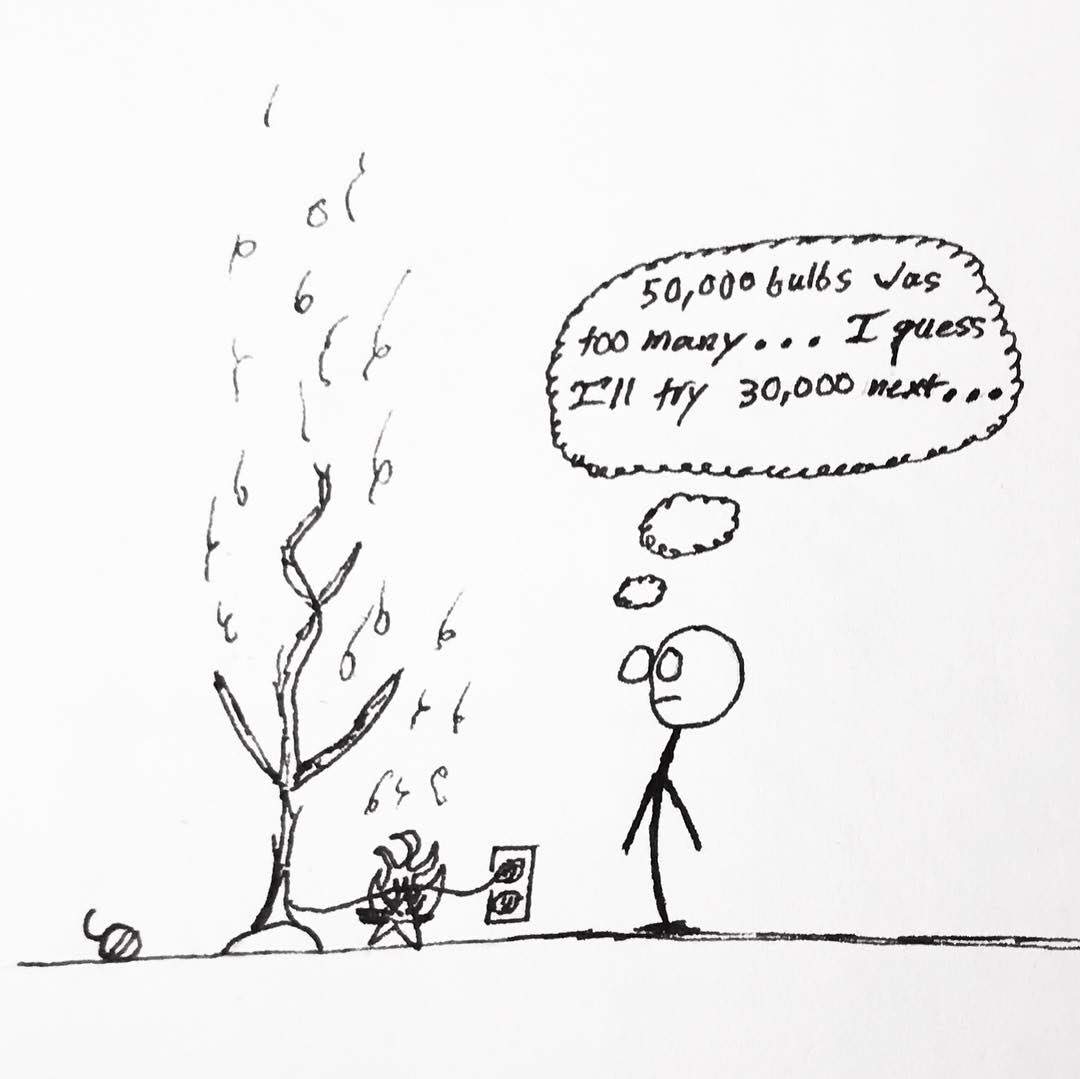 50,000 bulbs was
too many... I guess
I'll try 30,000 next...